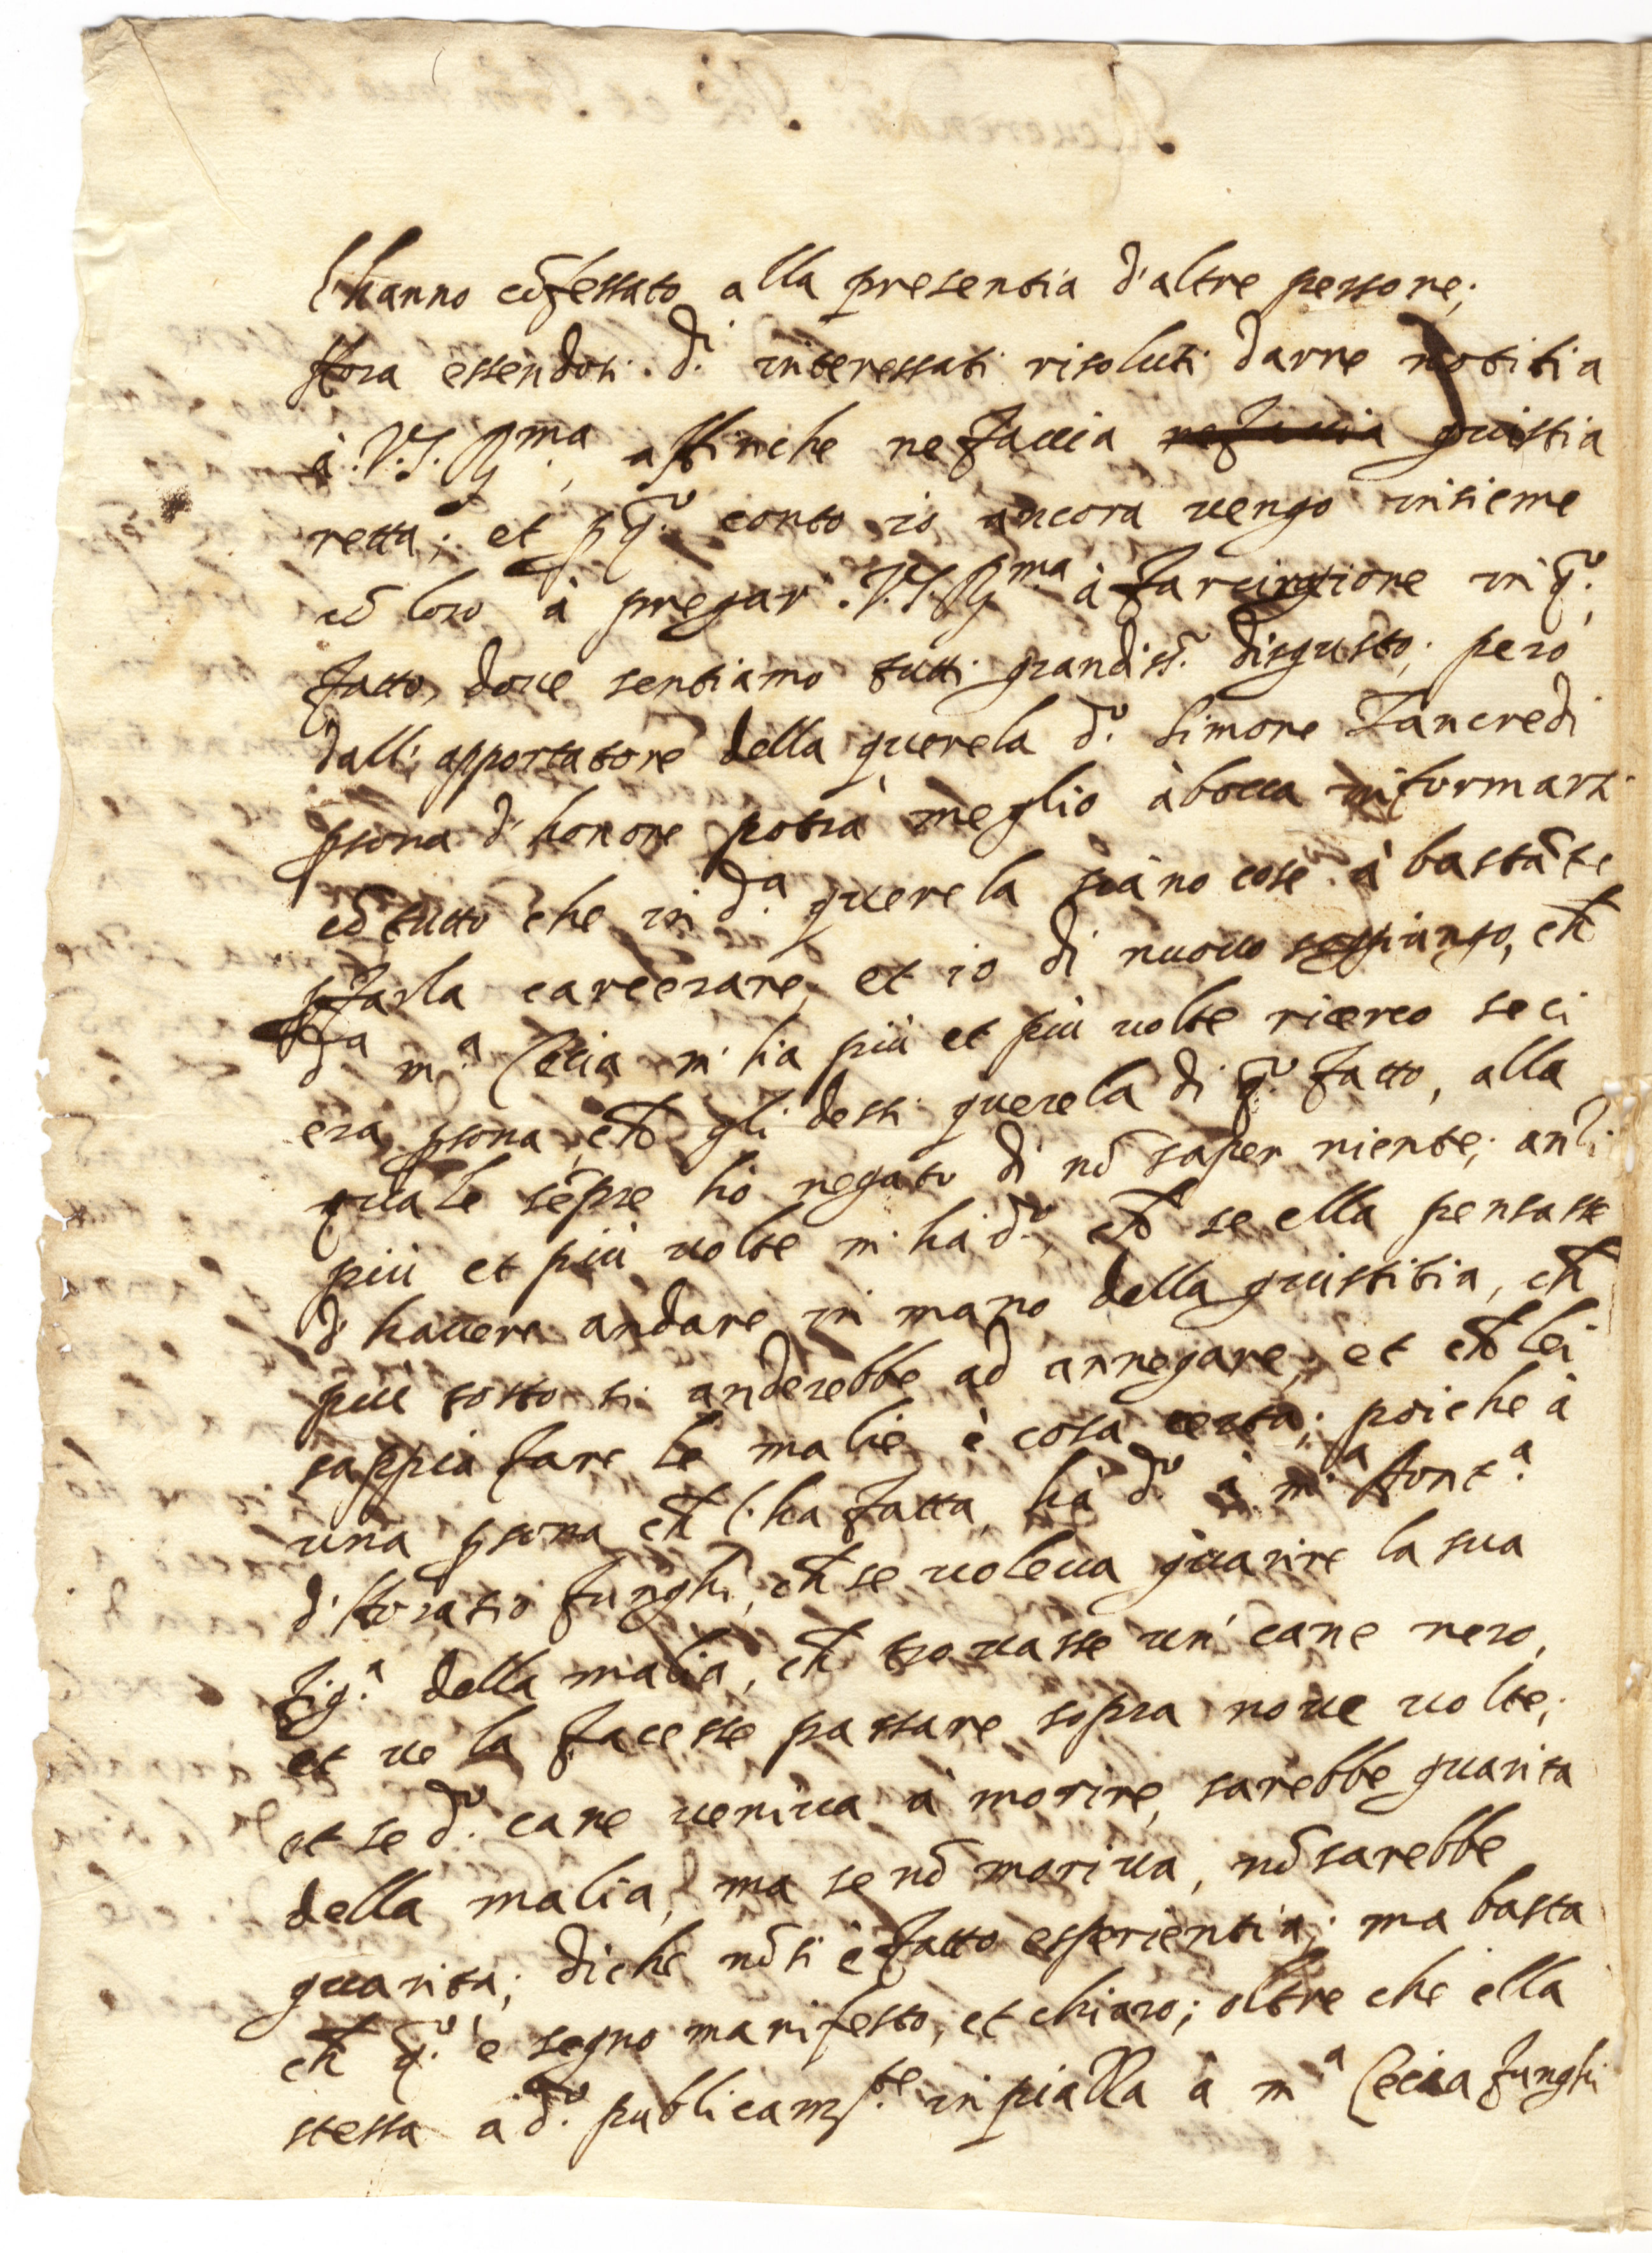 l'hanno cōfessato alla presentia d'altre persone;
Hora essendosi d.i interessati risoluti darne notitia
à V.S. R.ma, affinche ne faccia ne faccia giustitia
retta; et p q.o conto io ancora vengo insieme
cō loro à pregar V.S. R.ma à farci ragione in q.o
fatto, dove sentiamo tutti grandiss.o disgusto; però
dall'apportatore della querela d.o Simone Tancredi
psona d'honore potrà meglio à bocca informarsi
cō tutto che in d.a querela siano cose à bastāte
p farla carcerare, et io di nuovo soggiungo, ch̄
d.a m.a Cecia m'ha più et più volte ricerco se ci
era psona, ch̄ gli dessi querela di q.o fatto, alla
quale sēpre hò negato di nō saper niente; anzi
più et più volte m'ha d.o, ch̄ se ella pensasse
d'havere andare in mano della giustitia, ch̄
più tosto si anderebbe ad annegare; et ch̄ lei
sappia fare le malie è cosa certa; poiche à
una psona ch̄ l'ha fatta, hà d.o à m.a Hont.a
d'Horatio funghi, ch̄ se voleva guarire la sua
fig.a della malia, ch̄ trovasse un' cane nero,
et ve la facesse passare sopra nove volte;
et se d.o cane veniva à morire, sarebbe guarita
della malia, ma se nō moriva, nō sarebbe
guarita; di che nō si è fatto esperientia; ma basta
ch̄ q.o è segno manifesto, et chiaro; oltre che ella
stessa a d.o publicam.te in piazza à m.a Cecia funghi